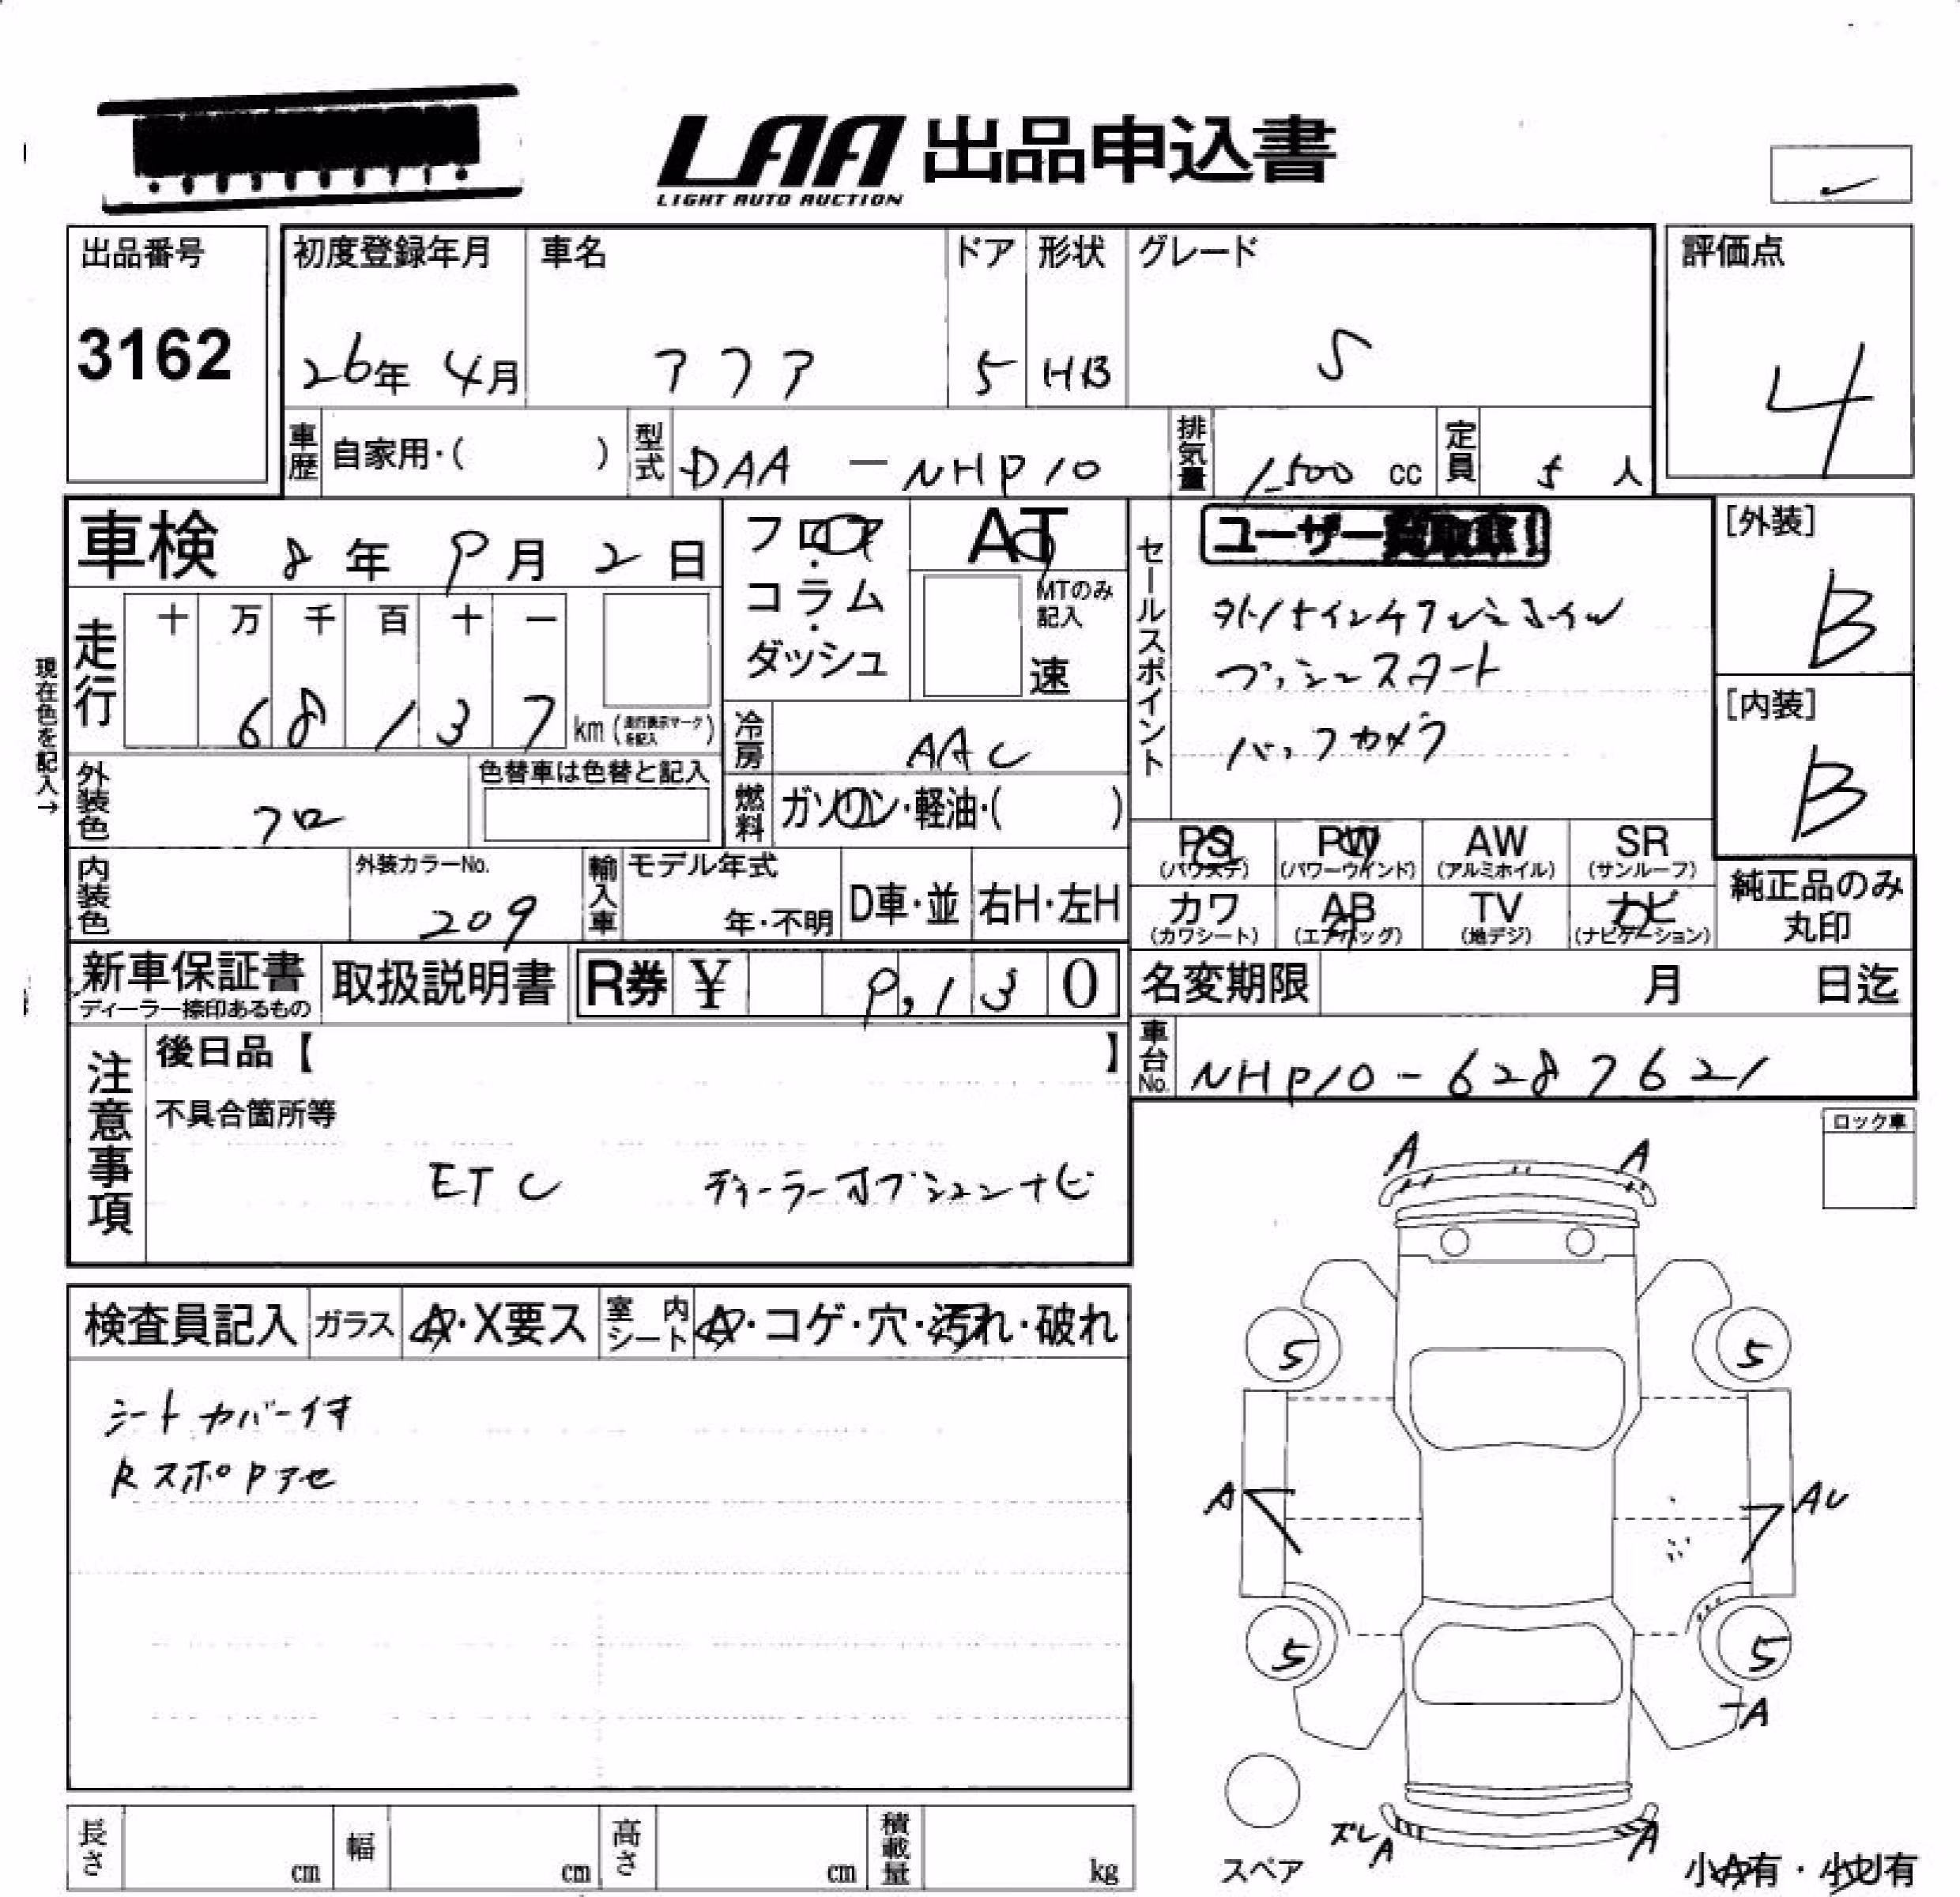 LAA 出品申込書
LIGHT AUTO AUCTION
出品番号
3162
初度登録年月
26年 4月
車名
アクア
ドア
5
形状
HB
グレード
S
評価点
4
車歴 自家用・( )
型式 DAA - NHP10
排気量 1500 cc
定員 5 人
車検 8年 9月 2日
フロア・コラム・ダッシュ
AT
MTのみ記入
速
セールスポイント
ユーザー買取車!
プッシュスタート
バックカメラ
[外装]
B
[内装]
B
現在色を記入→
走行
十 万 千 百 十 一
6 8 1 3 7
km (走行表示マークを記入)
冷房 AAC
外装色 クロ
色替車は色替と記入
燃料 ガソリン・軽油・( )
PS (パワステ)
PW (パワーウインド)
AW (アルミホイル)
SR (サンルーフ)
カワ (カワシート)
AB (エアバッグ)
TV (地デジ)
ナビ (ナビゲーション)
純正品のみ丸印
内装色
外装カラーNo.
209
輸入車
モデル年式
年・不明
D車・並
右H・左H
新車保証書
ディーラー捺印あるもの
取扱説明書
R券 ¥ 9,130
名変期限 月 日迄
車台No. NHP10-6287621
注意事項
後日品【 】
不具合箇所等
ETC ディーラーオプションナビ
ロック車
A A
検査員記入
ガラス A・X要ス
室内シート A・コゲ・穴・汚れ・破れ
シートカバー付
RスポPアセ
5 5
A AU
5 5
A
ズレA A
スペア
小A有・小U有
長さ cm
幅 cm
高さ cm
積載量 kg